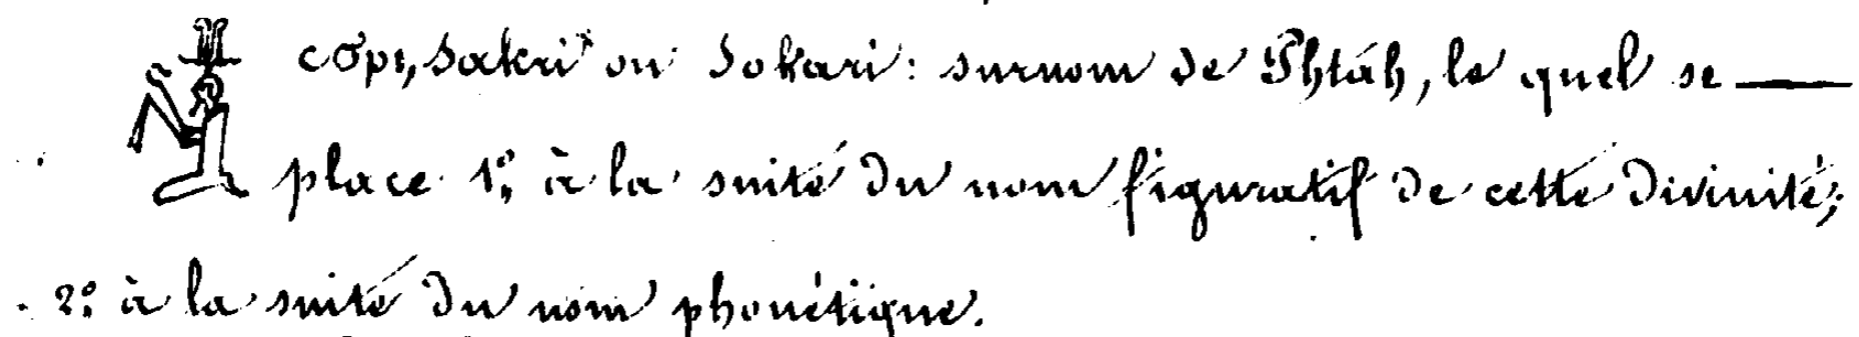 Sakri ou Sokari: surnom de Phtáh, le quel se —
place 1º, à la suite du nom figuratif de cette divinité;
2º à la suite du nom phonétique.